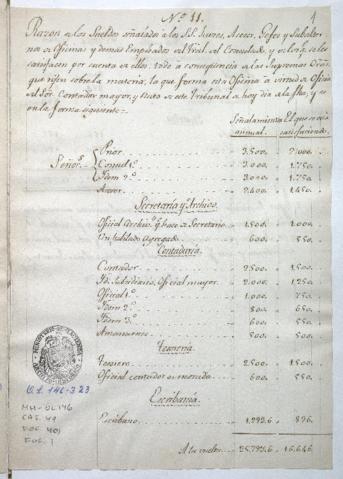 Nº 11.
1
Razon de los Sueldos señalados a los SS. Jueces, Asesor, Gefes y Subalter-
nos de Oficinas y demas Empleados del Trial. del Consulado, y de los q. se les
satisfacen por cuenta de ellos, todo a consequencia de las Supremas Orns.
que rigen sobre la materia; lo que forma esta Oficina a virtud de Oficio
del Sor. Contador mayor, y Visto de este Tribunal de hoy dia de la fha, y es
en la forma siguiente:
Señalamiento anual. El que se está satisfaciendo.
Señors. Prior 3.500. 2.000.
Consul 1º 3.000. 1.750.
Idem 2º 3.000. 1.750.
Asesor 2.400. 1.450.
Secretaría y Archivo.
Oficial Archivo. q. hace de Secretario 1.500. 1.000.
Un Jubilado Agregado 600. 550.
Contaduría.
Contador 2.500. 1.500.
Id. Subsidiario, Oficial mayor 2.000. 1.250.
Oficial 1º 1.000. 750.
Idem 2º 800. 650.
Idem 3º 600. 550.
Amanuense 500. 500.
Tesorería
Tesorero 2.500. 1.500.
Oficial contador de moneda 600. 550.
Escribanía
Escribano 1.292.6 896.
A la vuelta 25.792.6 16.646.
O.L. 146-323
MH-OL146
CAJ. 49
DOC. 401
FOL. 1